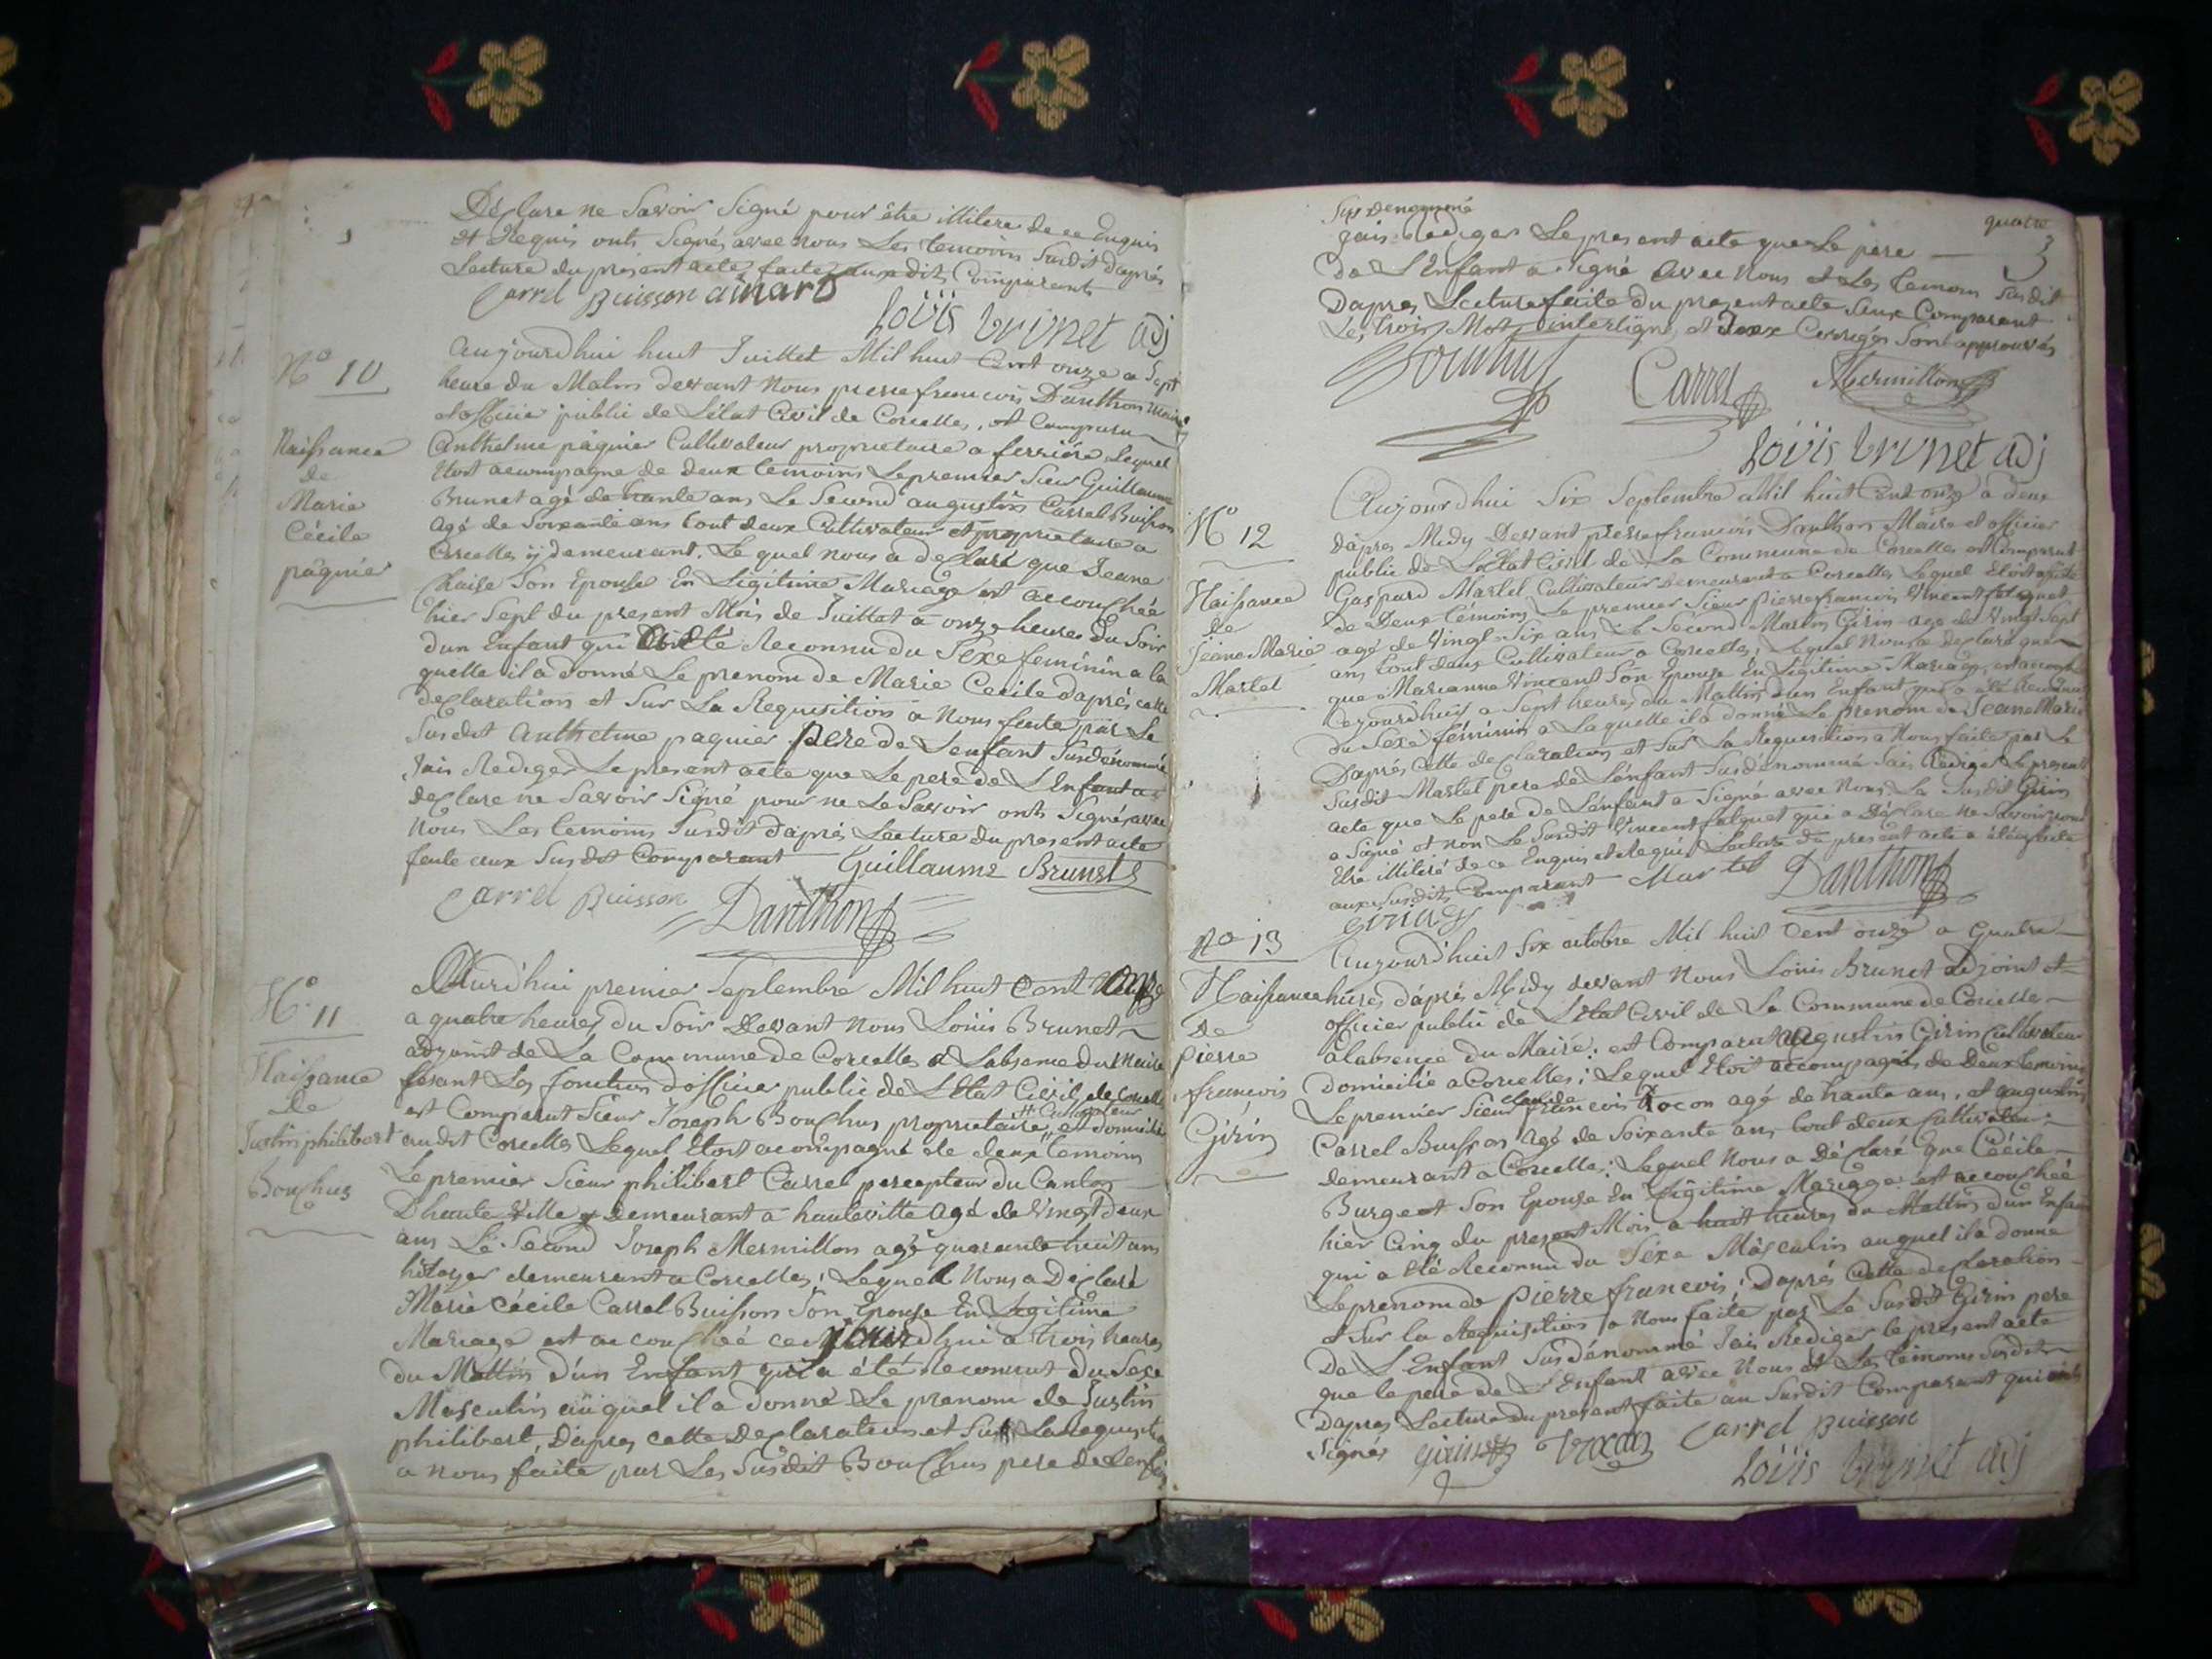 Déclare ne Savoir Signé pour être illitere de ce Enquis
et Requis onts Signés avec nous Les temoins Susdit d'aprés
Lecture du présent acte faite aux dits Comparants
Carrel Buisson ainard
Loüis brunet adj
N.o 10
Naissance
de
Marie
Cécile
pâquier
Aujourdhui huit Juillet Mil huit Cent onze a Sept
heure du Matin devant Nous pierre francois Danthon Maire
et officier public de L'état Civil de Corcelles, est Comparu
Anthelme pâquier Cultivateur proprietaire a ferriére Lequel
étoit acompagne de deux temoins Le premier Sieur Guillaume
Brunet agé de trante ans Le Second augustin Carrel Buisson
agé de Soixante ans tout deux Cultivateur et proprietaire a
Corcelles ÿ demeurant. Le quel nous a déclaré que Jeane
Chaise Son Epouse En Légitime Mariage est accouchée
hier Sept du present Mois de Juillet a onze heures du Soir
dun Enfant qui a été Reconnu du Sexe feminin a la
quelle il a donné Le prenom de Marie Cecile d'aprés cette
declaration et Sur La Requisition a Nous faite par Le
Susdit Anthelme paquier Pere de L'enfant Susdénommé
Jais Rediger Le present acte que Le pere de L'Enfant a
declare ne Savoir Signé pour ne Le Savoir onts Signés avec
Nous Les temoins Susdit d'aprés Lecture du present acte
faite aux Susdit Comparant Guillaume Brunet
Carrel Buisson Danthon
N.o 11
Naissance
de
Justin philibert
Bouchus
Aujourd'hui premier Septembre Mil huit Cent onze
a quatre heures du Soir Devant Nous Loüis Brunet
adjoint de La Commune de Corcelles a L'absence du Maire
fésant Les fonctions d'officier public de L'Etat Civil de Corcelles
est Comparut Sieur Joseph Bouchus proprietaire et domicilié
audit Corcelles Lequel Etoit acompagné de deux temoins
Le premier Sieur philibert Carrel percepteur du Canton
D'haute Ville Demeurant a hauteville agé de Vingt deux
ans Le Second Joseph Mermillon agé quarante huit ans
demeurant a Corcelles; Lequel Nous a Déclaré
Marie Cécile Carrel Buisson Son Epouse En Légitime
Mariage est accouchée ce jourdhui a trois heures
du Mattin d'un Enfant qui a été Reconnut du Sexe
Masculin auquel il a donné Le prenom de Justin
philibert, D'apres cette Declaration et Sur La Requisition
a nous faite par Les Susdit Bouchus pere de Lenfan
quatre
3
Susdenommé
Jais Rediger Le present acte que Le pere
de L'Enfant a Signé avec Nous et Les temoin Susdit
Dapres Lecture faite du present acte Comparant
Les trois Mots interligne, et Corrigés Sont approuvés
Carrel Mermillon
Loüis brunet adj
N.o 12
Naissance
de
Jeane Marie
Martel
Aujourdhui Six Septembre Mil huit Cent onze a deux
d'apres Midy Devant pierre francois Danthon Maire et officier
public de L'Etat Civil de La Commune de Corcelles est Comparut
Gaspard Martel Cultivateur Demeurant a Corcelles Lequel Etoit
de Deux témoins Le premier Sieur Pierre francois Vincent falquet
agé de Vingt Six ans Le Second Martin Girin agé de Vingt Sept
ans tout deux Cultivateur a Corcelles; Lequel Nous a declaré que
que Marianne Vincent Son Epouse En Légitime Mariage, est accouché
Cejourdhuis a Sept heures du Mattin d'un Enfant qui a été Reconnu
du Sexe féminin a Laquelle il a donné Le prenom de Jeane Marie
D'aprés Cette declaration et Sur La Requisition a Nous faite par Le
Susdit Martel pere de L'énfant Susdénommé Jais Rediger Le present
acte que Le pere de L'énfant a Signé avec Nous, Le Susdit Girin
a Signé et non Le Susdit Vincent falquet qui a Déclare ne Savoir
Etre illitéré de ce Enquis et Requis Lecture du present acte a été faite
aux Susdits Comparant Martel Danthon
girin
No 13
Naissance
de
Pierre
francois
Girin
Aujourd'huit Six octobre Mil huit Cent onze a Quatre
hures d'aprés Midy devant Nous Loüis Brunet adjoint et
officier public de L'état Civil de La Commune de Corcelles
a L'absence du Maire: est Comparut augustin Girin Cultivateur
domicilié a Corcelles; Lequel Etoit accompagné de Deux temoins
claude
Le premier Sieur francois agé de trante ans, et augustin
Carrel Buisson agé de Soixante ans, tout deux Cultivateur
demeurant a Corcelles: Lequel Nous a déclaré que Cécile
Burgeot Son Epouse En Légitime Mariage est accouchée
hier Cinq du present Mois a huit heures du Mattin d'un Enfant
qui a été Reconnu du Séxe Masculin auquel il a donne
Le prenom de Pierre francois; D'aprés Cette declaration
et Sur la Requisition a Nous faite par Le Susdit Girin pere
De L'Enfant Susdénommé Jais Rédiger le present acte
que le pere de L'Enfant avec Nous et Les temoins Susdits
Dapres Lecture du present faite au Susdit Comparant qui onts
Signés girin Carrel Buisson
Loüis brunet adj